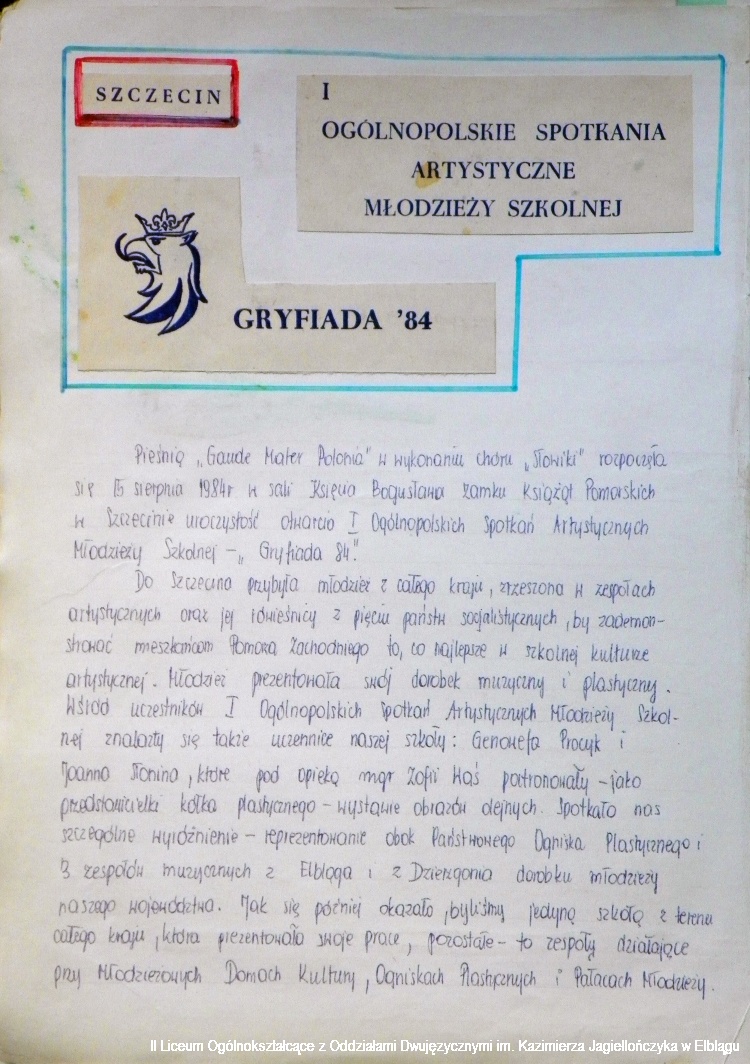 SZCZECIN
I
OGÓLNOPOLSKIE SPOTKANIA
ARTYSTYCZNE
MŁODZIEŻY SZKOLNEJ
GRYFIADA '84
Pieśnią „Gaude Mater Polonia" w wykonaniu chóru „Słowiki" rozpoczęła
się 15 sierpnia 1984r w sali Księcia Bogusława zamku Książąt Pomorskich
w Szczecinie uroczystość otwarcia I Ogólnopolskich Spotkań Artystycznych
Młodzieży Szkolnej – „Gryfiada 84".
Do Szczecina przybyła młodzież z całego kraju, zrzeszona w zespołach
artystycznych oraz jej rówieśnicy z pięciu państw socjalistycznych, by zademon-
strować mieszkańcom Pomorza Zachodniego to, co najlepsze w szkolnej kulturze
artystycznej. Młodzież prezentowała swój dorobek muzyczny i plastyczny.
Wśród uczestników I Ogólnopolskich Spotkań Artystycznych Młodzieży Szkol-
nej znalazły się także uczennice naszej szkoły: Genowefa Procyk i
Joanna Słonina, które pod opieką mgr Zofii Waś patronowały – jako
przedstawicielki kółka plastycznego – wystawie obrazów olejnych. Spotkało nas
szczególne wyróżnienie – reprezentowanie obok Państwowego Ogniska Plastycznego i
3 zespołów muzycznych z Elbląga i z Dzierzgonia dorobku młodzieży
naszego województwa. Jak się później okazało, byliśmy jedyną szkołą z terenu
całego kraju, która prezentowała swoje prace, pozostałe – to zespoły działające
przy Młodzieżowych Domach Kultury, Ogniskach Plastycznych i Pałacach Młodzieży.
II Liceum Ogólnokształcące z Oddziałami Dwujęzycznymi im. Kazimierza Jagiellończyka w Elblągu